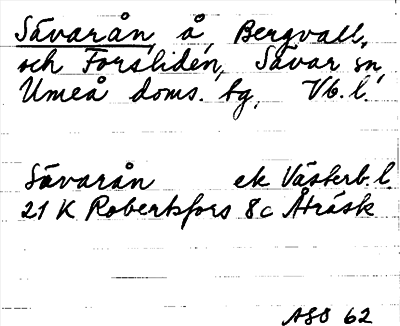 Sävarån, å, Bergvall,
och Forsliden, Sävar sn,
Umeå doms. tg, Vb. l.
Sävarån ek Västerb. l.
21 K Robertsfors 8c Åträsk
ASO 62